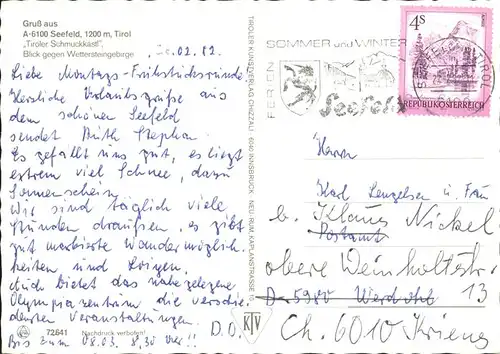 Gruß aus
A-6100 Seefeld, 1200 m, Tirol
„Tiroler Schmuckkastl",
Blick gegen Wettersteingebirge
02.82
Liebe Montags-Frühstücksrunde!
Herzliche Urlaubsgrüße aus
dem schönen Seefeld
sendet Ruth Stephan
Es gefällt uns gut, es liegt
extrem viel Schnee, dazu
Sonnenschein
Wir sind täglich viele
Stunden draußen, es gibt
gut markierte Wandermöglich-
keiten und Loipen.
Auch bietet das nahegelegene
Olympiazentrum die verschie-
densten Veranstaltungen.
Bis zum 08.03. 8,30 Uhr!!
72641 Nachdruck verboten!
TIROLER KUNSTVERLAG CHIZZALI 6020 INNSBRUCK NEU-RUM, KAPLANSTRASSE
KTV
FERIEN
SOMMER und WINTER
Seefeld
4 S
REPUBLIK ÖSTERREICH
SEEFELD TIROL
Herrn
Karl Lengelsen u. Frau
b. Klaus Nickel
Postamt
obere Weinhaldestr.
13
D - 5980 Werdohl
D.O.
Ch. 6010 Kriens